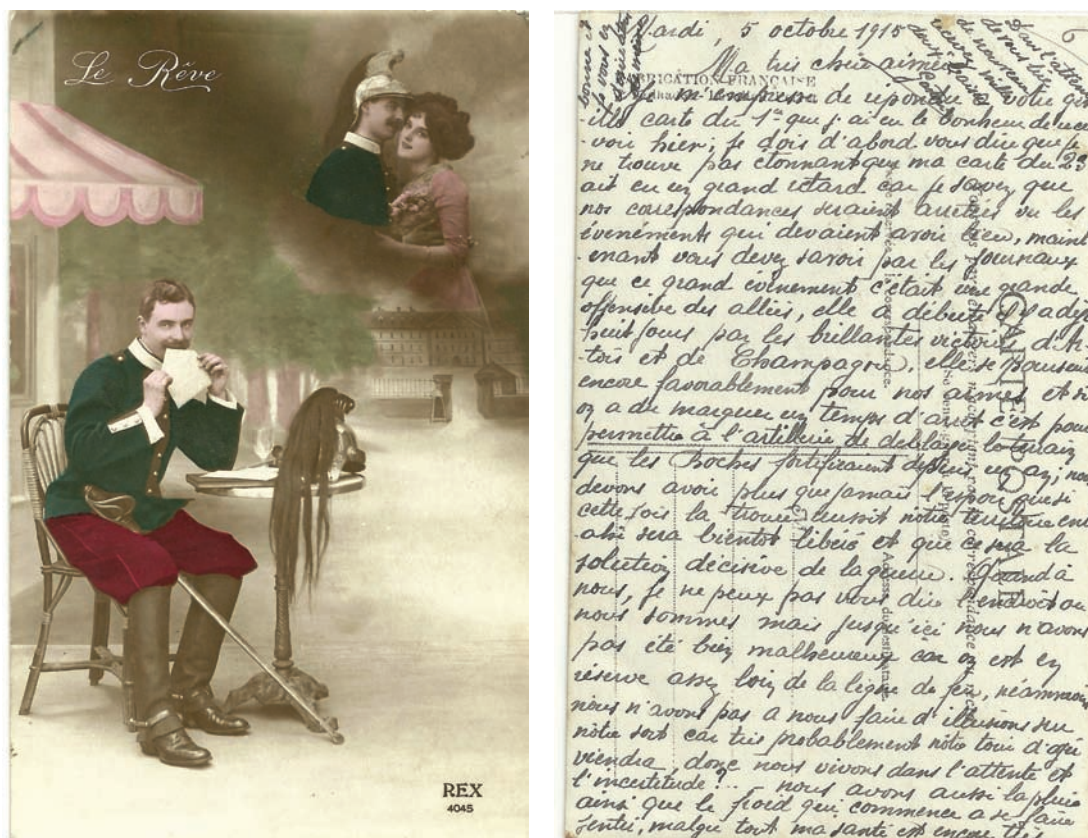 Le Rêve
REX
4045
Mardi, 5 octobre 1915
Ma très chère aimée
FABRICATION FRANÇAISE
Je m'empresse de répondre à votre gen
-tille carte du 1er que j'ai eu le bonheur de rece
-voir hier, je dois d'abord vous dire que je
ne trouve pas étonnant que ma carte du 23
ait eu un grand retard car je savez que
nos correspondances seraient arrêtées vu les
évenéments qui devaient avoir lieu, maint
-enant vous devez savoir par les journaux
que ce grand évènement c'était une grande
offensive des alliés, elle a débuté il y a déjà
huit jours par les brillantes victoires d'Ar-
-tois et de Champagne, elle se poursuit
encore favorablement pour nos armes et si
on a du marquer un temps d'arrêt c'est pour
permettre à l'artillerie de déblayer le terrain
que les Boches fortifiaient depuis un an; nous
devons avoir plus que jamais l'espoir que si
cette fois la trouée réussit notre territoire env
-ahi sera bientôt libéré et que ce sera la
solution décisive de la guerre. Quand à
nous, je ne peux pas vous dire l'endroit où
nous sommes mais jusqu'ici nous n'avons
pas été bien malheureux car on est en
réserve assez loin de la ligne de feu, néanmoins
nous n'avons pas a nous faire d'illusions sur
notre sort car très probablement notre tour d'agir
viendra, donc nous vivons dans l'attente et
l'incertitude?... nous avons aussi la pluie
ainsi que le froid qui commence a se faire
sentir, malgré tout ma santé est encore très
Dans l'attente
de vous lire
de nouveau
bonne et
CARTE POSTALE
Adresse du destinataire